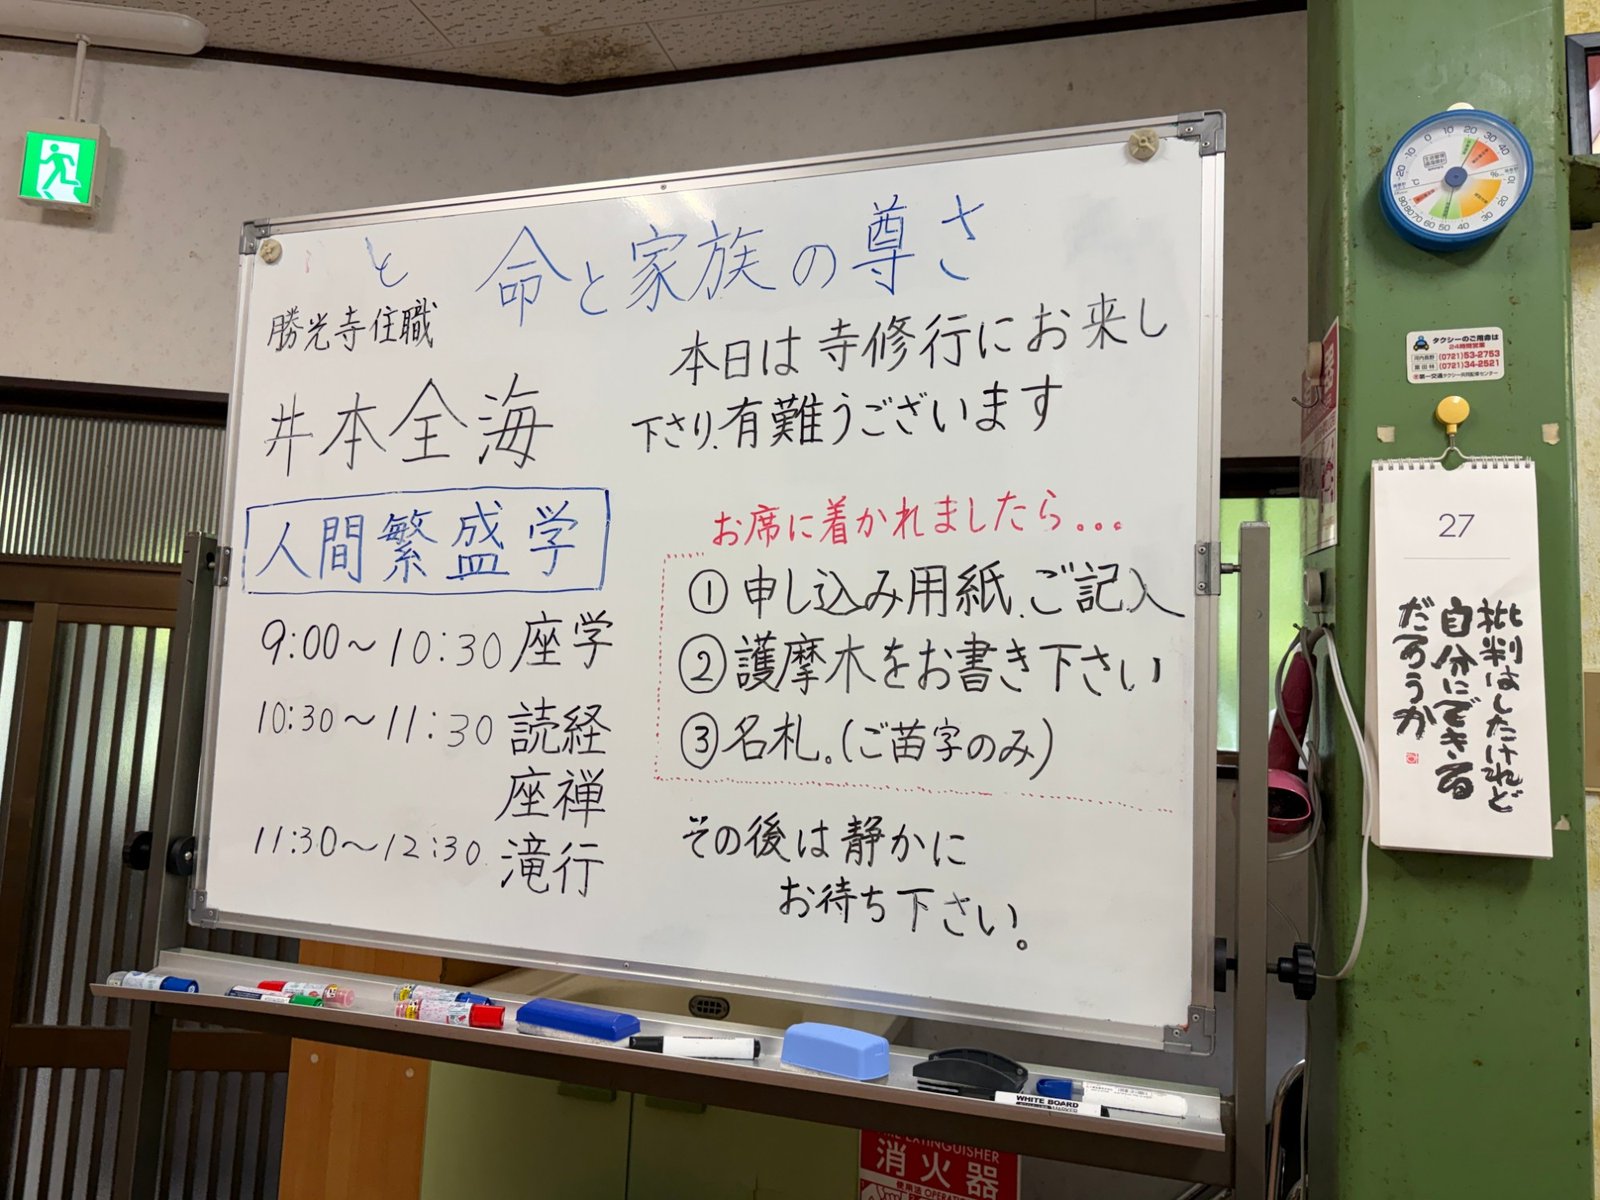 と 命と家族の尊さ
勝光寺住職
井本全海
人間繁盛学
9:00～10:30 座学
10:30～11:30 読経
座禅
11:30～12:30 滝行
本日は寺修行にお来し
下さり、有難うございます
お席に着かれましたら...
①申し込み用紙、ご記入
②護摩木をお書き下さい
③名札。(ご苗字のみ)
その後は静かに
お待ち下さい。
タクシーのご用命は
24時間営業
河内長野 (0721)53-2753
富田林 (0721)34-2521
第一交通タクシー共同配車センター
27
批判はしたけれど
自分にできる
だろうか
WHITE BOARD
EXTINGUISHER
消火器
使用法